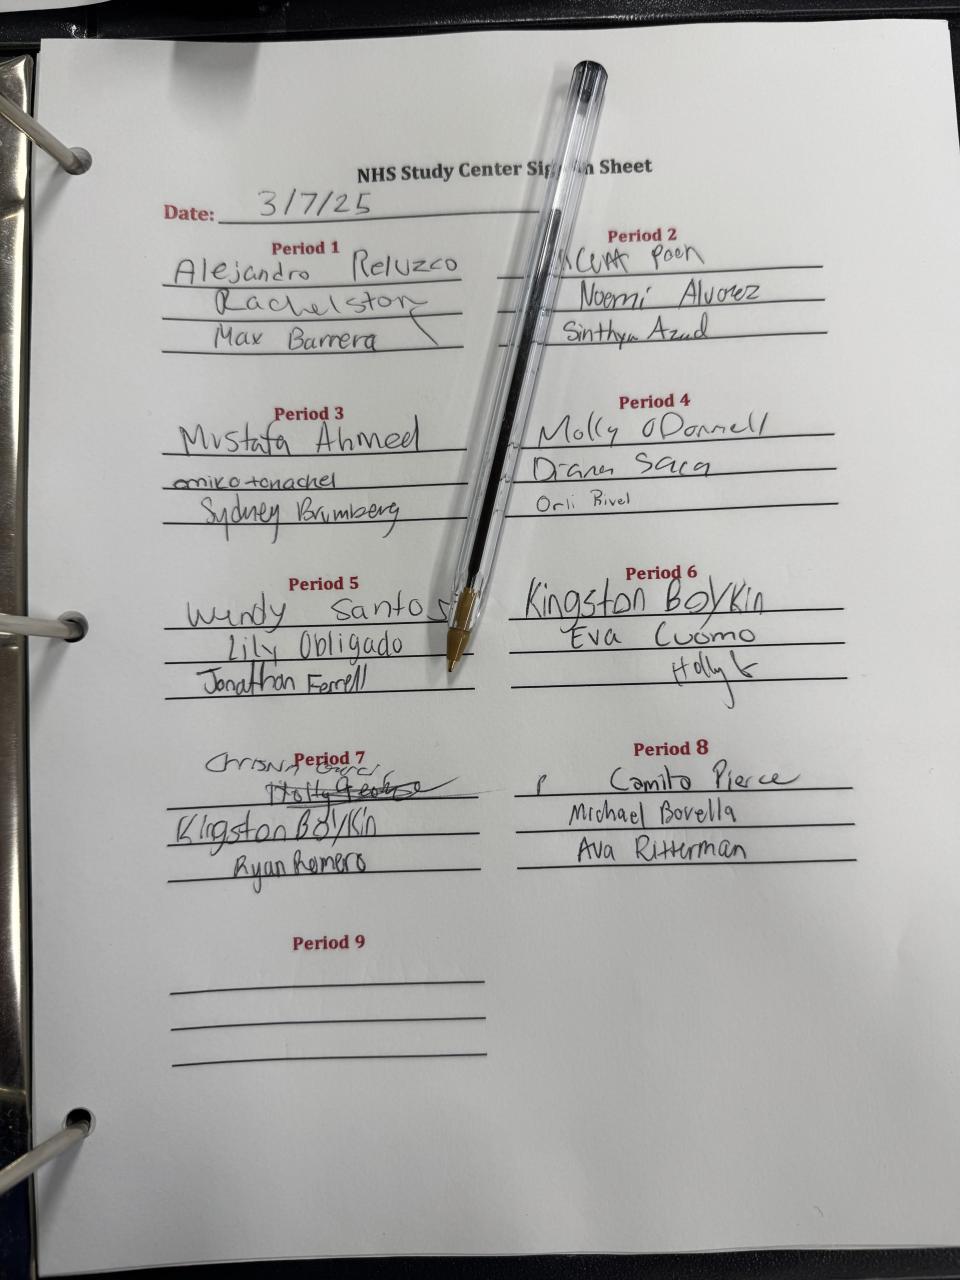 NHS Study Center Sign In Sheet
Date: 3/7/25
Period 1
Alejandro Reluzco
Rachel ston
Max Barrera
Period 2
Poon
Noemi Alvarez
Sinthya Azad
Period 3
Mustafa Ahmed
omiko tonachel
Sydney Brumberg
Period 4
Molly O'Donnell
Diana Saca
Orli Rivel
Period 5
Wendy Santos
Lily Obligado
Jonathan Ferrell
Period 6
Kingston Boykin
Eva Cuomo
Holly
Period 7
Kingston Boykin
Ryan Romero
Period 8
Camila Pierce
Michael Bovella
Ava Ritterman
Period 9